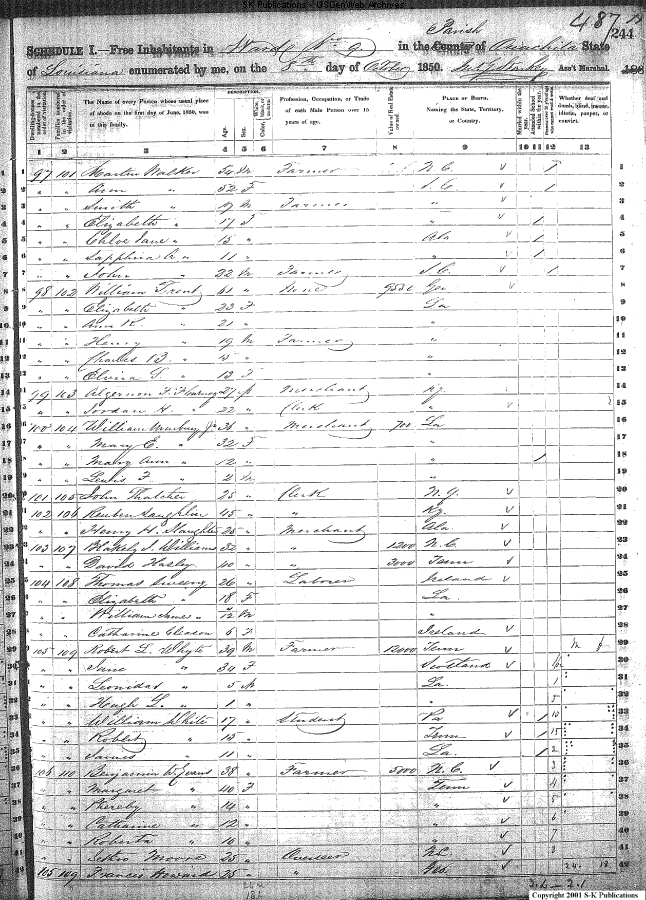 S-K Publications - USGenWeb Archives
487
244
Parish
SCHEDULE I.—Free Inhabitants in Ward No 9 in the County of Ouachita State
of Louisiana enumerated by me, on the 8th day of October 1850. Ass't Marshal.
DESCRIPTION.
Dwelling-houses numbered in the order of visitation.
Families numbered in the order of visitation.
The Name of every Person whose usual place of abode on the first day of June, 1850, was in this family.
Age.
Sex.
Color
Profession, Occupation, or Trade of each Male Person over 15 years of age.
Value of Real Estate owned.
PLACE OF BIRTH. Naming the State, Territory, or Country.
Married within the year.
Attended School within the year.
Whether deaf and dumb, blind, insane, idiotic, pauper, or convict.
1 2 3 4 5 6 7 8 9 10 11 12 13
1 97 101 Martin Walker 54 M Farmer N.C. 1 1
2 " " Ann " 52 F S.C. 1 2
3 " " Smith " 19 M Farmer " 3
4 " " Elizabeth " 17 F " 1 4
5 " " Chloe Jane " 15 " Ala 1 5
6 " " Sapphira A " 11 " " 1 6
7 " " John " 22 M Farmer S.C. 1 7
8 98 102 William Trent 61 " None Geo 8
9 " " Elizabeth " 22 F La 9
10 " " Ann K " 21 " " 10
11 " " Henry " 19 M Farmer " 11
12 " " Charles B. " 15 " " 12
13 " " Elvira T. " 13 F " 13
14 99 103 Algernon 27 M Merchant Ky. 14
15 " " Jordan H. " 22 " Clerk " 15
16 100 104 William 36 " Merchant 700 La 16
17 " " Mary E. " 32 F " 17
18 " " Mary Ann " 12 " " 1 18
19 " " Lewis F " 2 M " 19
20 101 105 John Thatcher 25 " Clerk N.Y. 20
21 102 106 Reuben 45 " " Ky. 21
22 " " Henry H. Slaughter 25 " Merchant Ala. 22
23 103 107 Blakely J. Williams 32 " " 1200 N.C. 23
24 " " David Hasley 40 " " 3000 Tenn 24
25 104 108 Thomas Sweeny 26 " Laborer Ireland 25
26 " " Elizabeth " 18 F La. 26
27 " " William James " /12 M " 27
28 " " Catharine Gleason 6 F Ireland 28
29 105 109 Robert L. Whyte 39 M Farmer 12000 Tenn 29
30 " " Jane " 34 F Scotland 30
31 " " Leonidas " 5 M La. 31
32 " " Hugh G. " 1 " " 32
33 " " William White 17 " Student Pa 1 33
34 " " Robert " 13 " Tenn 1 34
35 " " James " 11 " La. 1 35
36 106 110 Benjamin W. Evans 38 " Farmer 5000 N.C. 36
37 " " Margaret " 40 F Tenn 37
38 " " Phereby " 14 " " 38
39 " " Catharine " 12 " " 39
40 " " Roberta " 10 " " 40
41 " " Moore 25 " Overseer 41
42 105 109 Francis Howard 25 " " 42
Copyright 2001 S-K Publications